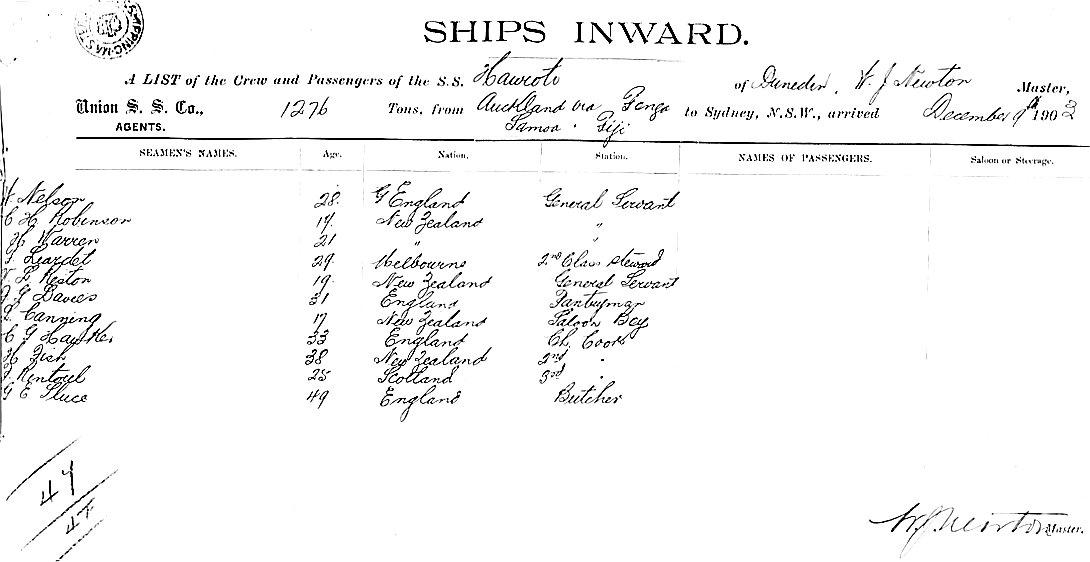 SHIPPING MASTER
SHIPS INWARD.
A LIST of the Crew and Passengers of the S.S. Hauroto of Duneden, W. J Newton Master,
Union S. S. Co., 1276 Tons. from Auckland via Tonga to Sydney, N.S.W., arrived December 9th 1903
AGENTS. Samoa · Fiji
SEAMEN'S NAMES. Age. Nation. Station. NAMES OF PASSENGERS. Saloon or Steerage.
Nelson 28. England General Servant
C H Robinson New Zealand "
H Warren 21 " "
Liardet 29 Melbourne 2nd Class Steward
19. New Zealand General Servant
G Davies 31 England Pantryman
Canning 17 New Zealand Saloon Boy
C G Hawkes 33 England Ch. Cook
H Fish 38 New Zealand 2nd "
Rentoul 25 Scotland 3rd "
G E Sluce 49 England Butcher
47
47
W J Newton Master.